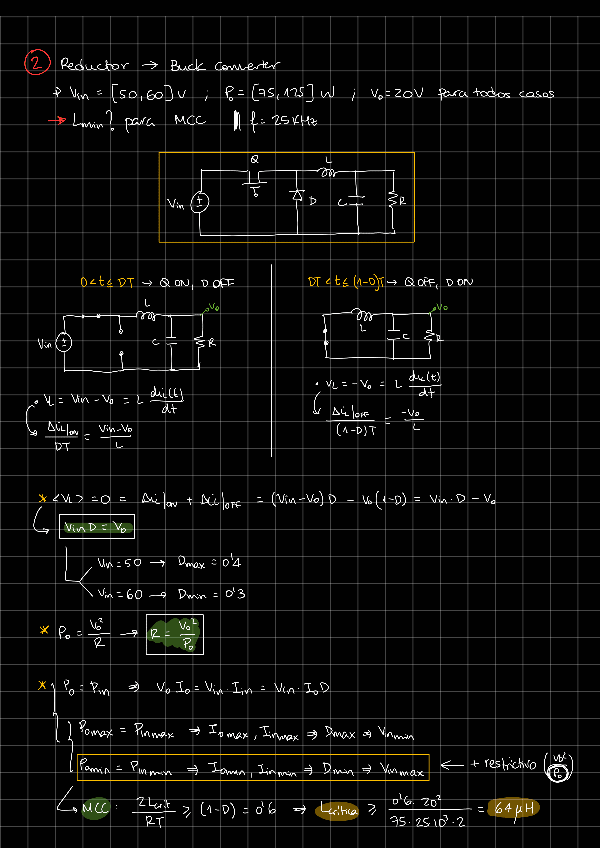 2 Reductor → Buck converter
→ Vin = [50,60] V ; Po = [75,125] W ; Vo = 20V para todos casos
→ Lmin? para MCC || f = 25 KHz
Q L
Vin ± D C R
0 < t ≤ DT → Q ON, D OFF
DT < t ≤ (1-D)T → Q OFF, D ON
L Vo
Vin ± C R
L C R Vo
• VL = Vin - Vo = L diL(t)/dt
ΔiL|ON / DT = Vin-Vo / L
• VL = -Vo = L diL(t)/dt
ΔiL|OFF / (1-D)T = -Vo / L
* <VL> = 0 = ΔiL|ON + ΔiL|OFF = (Vin-Vo) D - Vo (1-D) = Vin · D - Vo
Vin D = Vo
Vin = 50 → Dmax = 0'4
Vin = 60 → Dmin = 0'3
* Po = Vo²/R → R = Vo²/Po
* Po = Pin ⇒ Vo Io = Vin · Iin = Vin · Io D
Pomax = Pinmax ⇒ Iomax, Iinmax ⇒ Dmax ⇒ Vinmin
Pomin = Pinmin ⇒ Iomin, Iinmin ⇒ Dmin ⇒ Vinmax ← + restrictivo (Vo²/Po)
MCC: 2Lcrit/RT ≥ (1-D) = 0'6 ⇒ Lcrítica ≥ 0'6 · 20² / 75 · 25·10³ · 2 = 64 μH